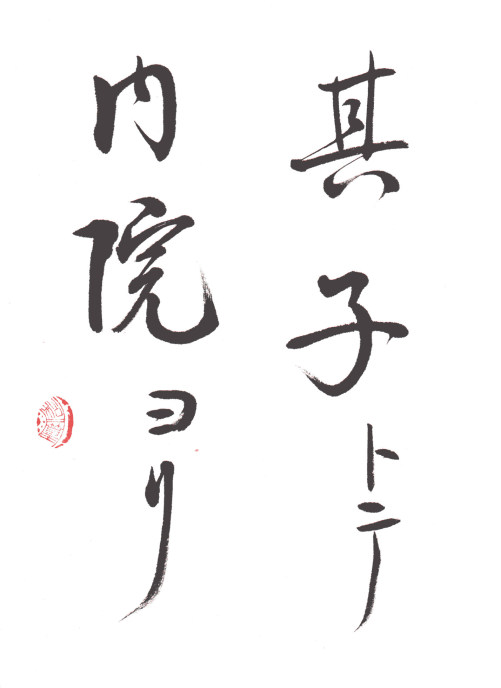 其子トテ
内院ヨリ